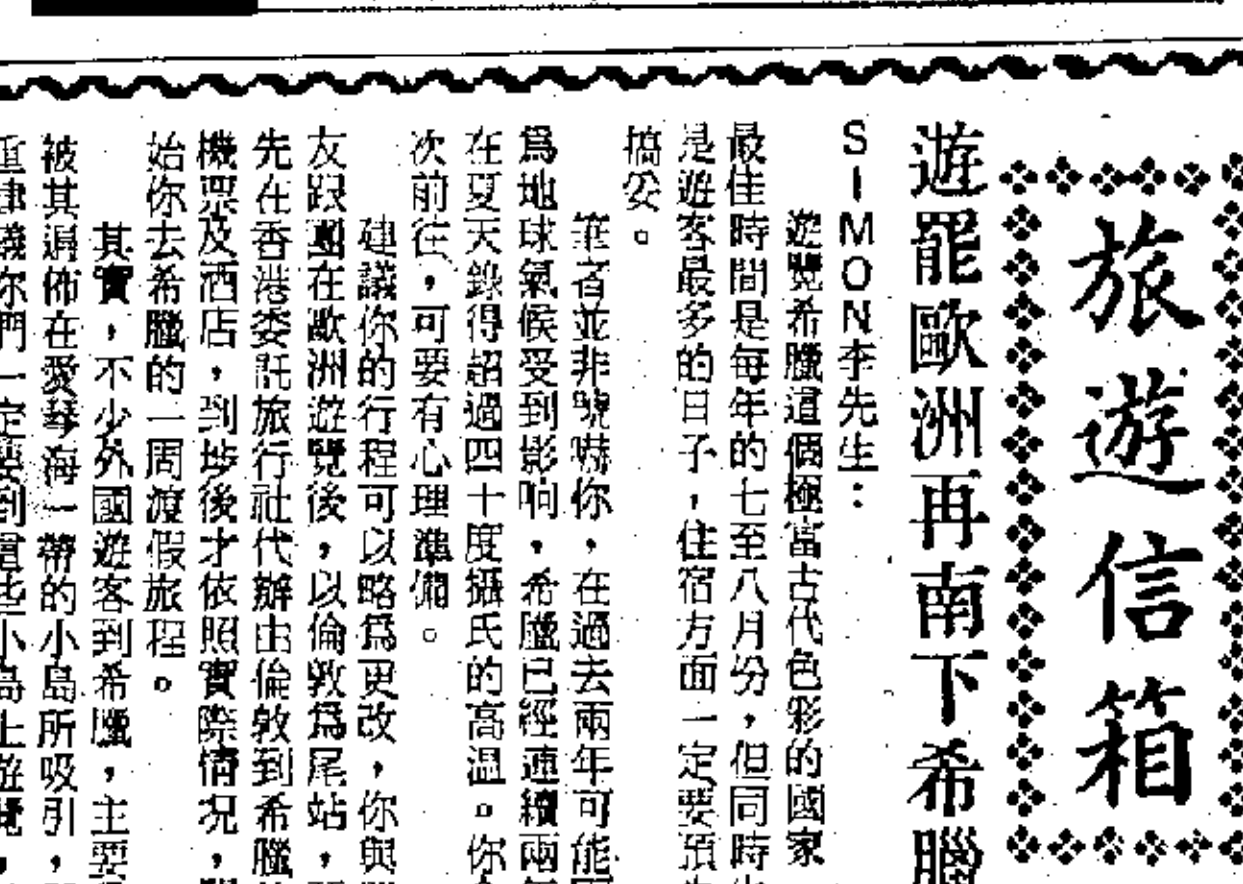 旅遊信箱
遊罷歐洲再南下希臘
SIMON李先生：
遊覽希臘這個極富古代色彩的國家
最佳時間是每年的七至八月份，但同時
是遊客最多的日子，住宿方面一定要預
搞妥。
筆者並非號嚇你，在過去兩年可能
爲地球氣候受到影响，希臘已經連續兩
在夏天錄得超過四十度攝氏的高温。你
次前往，可要有心理準備。
建議你的行程可以略爲更改，你與
友跟團在歐洲遊覽後，以倫敦爲尾站，
先在香港委託旅行社代辦由倫敦到希臘
機票及酒店，到埗後才依照實際情况，
始你去希臘的一周渡假旅程。
其實，不少外國遊客到希臘，主要
被其遍佈在愛琴海一帶的小島所吸引，
建議你們一定要到這些小島上遊覽，